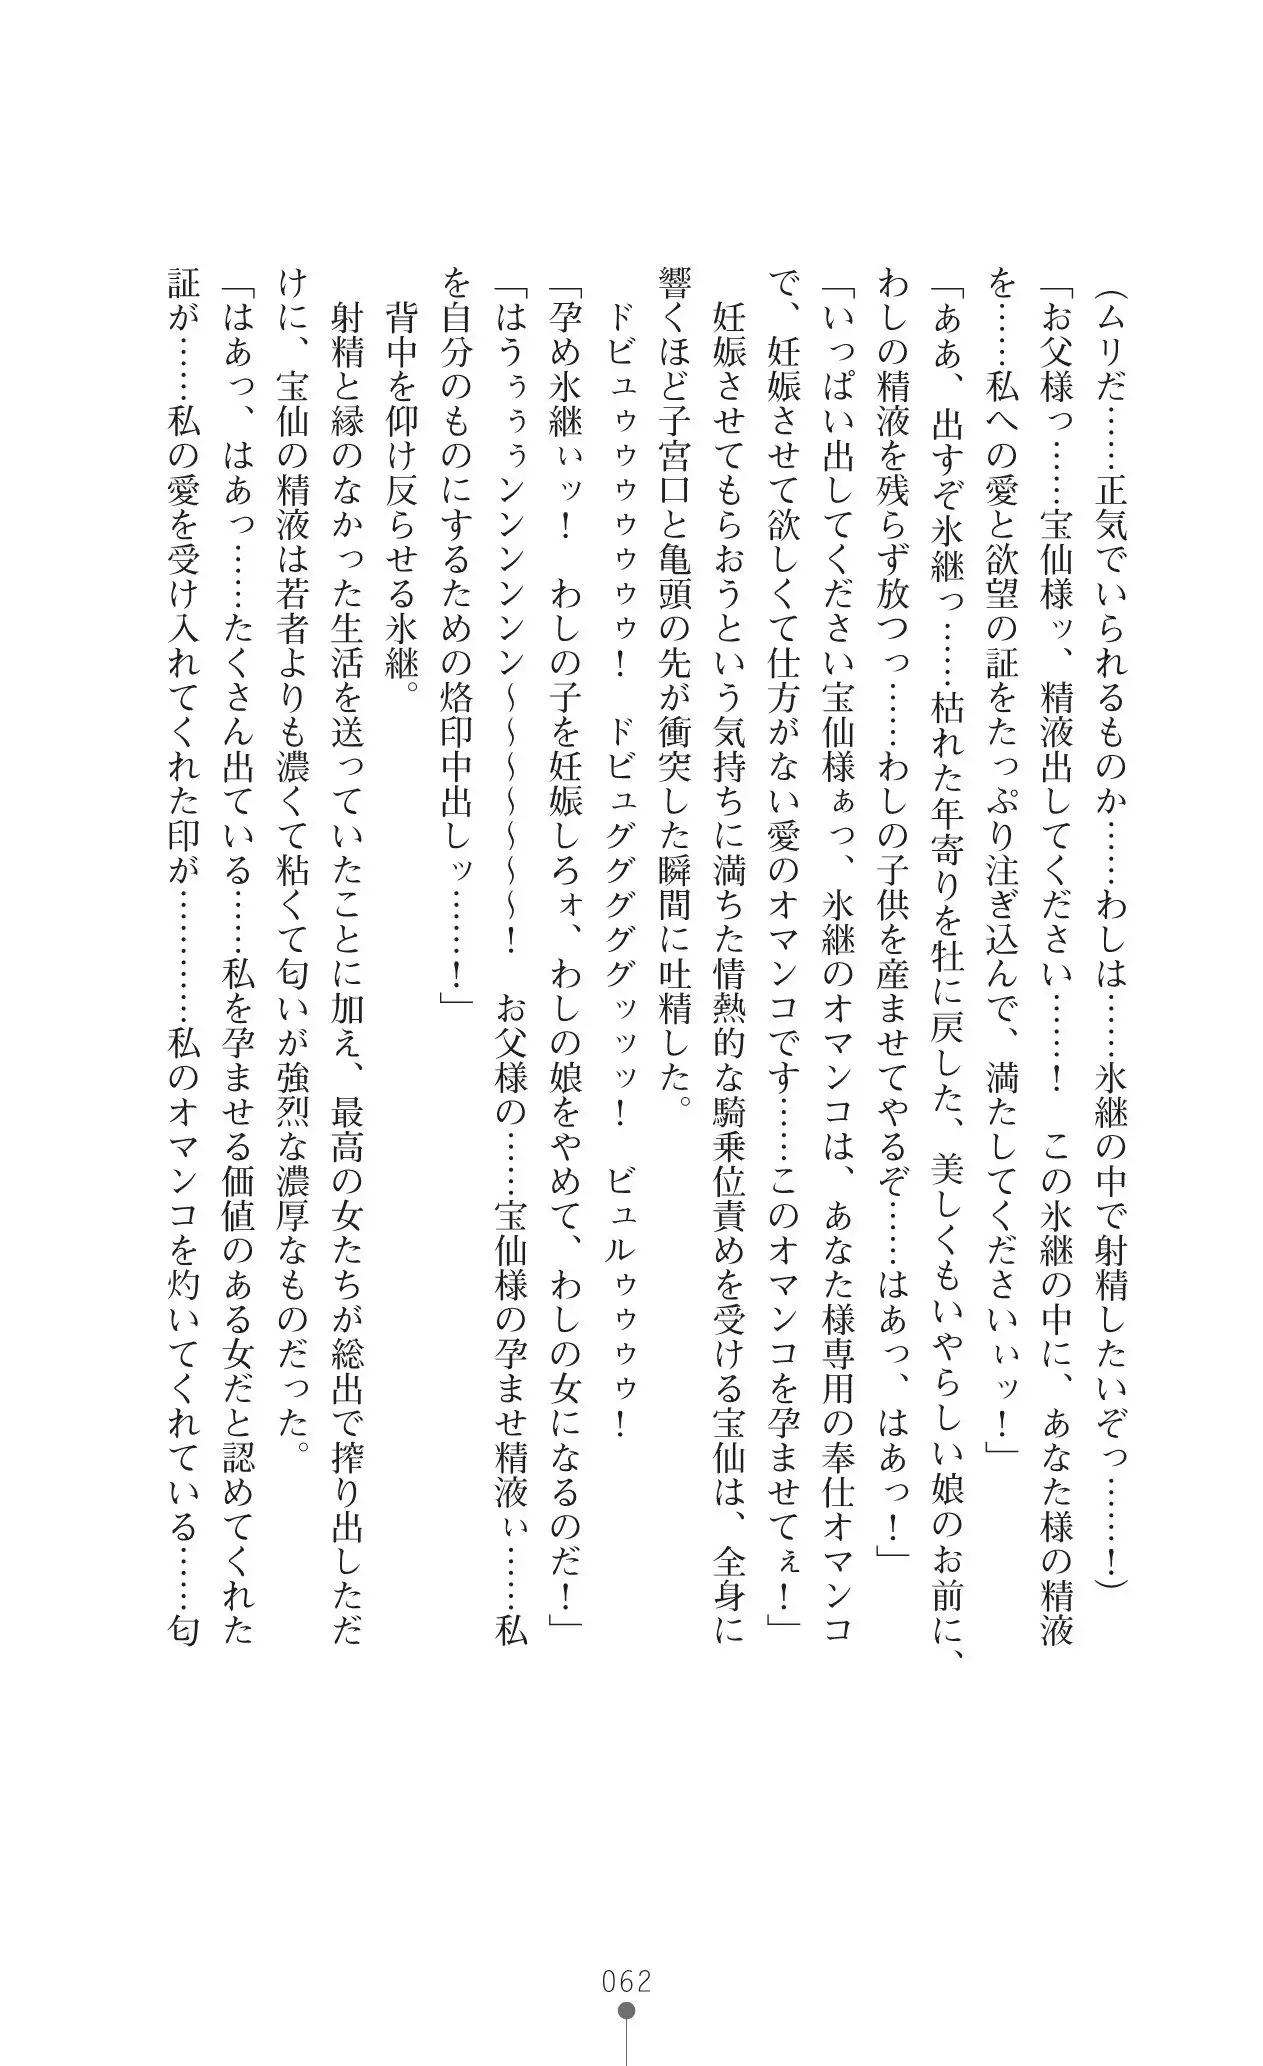 （ムリだ……正気でいられるものか……わしは……氷継の中で射精したいぞっ……！）
「お父様っ……宝仙様ッ、精液出してください……！　この氷継の中に、あなた様の精液
を……私への愛と欲望の証をたっぷり注ぎ込んで、満たしてくださいぃッ！」
「ああ、出すぞ氷継っ……枯れた年寄りを牡に戻した、美しくもいやらしい娘のお前に、
わしの精液を残らず放つっ……わしの子供を産ませてやるぞ……はあっ、はあっ！」
「いっぱい出してください宝仙様ぁっ、氷継のオマンコは、あなた様専用の奉仕オマンコ
で、妊娠させて欲しくて仕方がない愛のオマンコです……このオマンコを孕ませてぇ！」
　妊娠させてもらおうという気持ちに満ちた情熱的な騎乗位責めを受ける宝仙は、全身に
響くほど子宮口と亀頭の先が衝突した瞬間に吐精した。
　ドビュゥゥゥゥゥゥ！　ドビュググググッッッ！　ビュルゥゥゥゥ！
「孕め氷継ぃッ！　わしの子を妊娠しろォ、わしの娘をやめて、わしの女になるのだ！」
「はうぅぅぅンンンンンン～～～～～～～！　お父様の……宝仙様の孕ませ精液ぃ……私
を自分のものにするための烙印中出しッ……！」
　背中を仰け反らせる氷継。
　射精と縁のなかった生活を送っていたことに加え、最高の女たちが総出で搾り出しただ
けに、宝仙の精液は若者よりも濃くて粘くて匂いが強烈な濃厚なものだった。
「はあっ、はあっ……たくさん出ている……私を孕ませる価値のある女だと認めてくれた
証が……私の愛を受け入れてくれた印が…………私のオマンコを灼いてくれている……匂
062